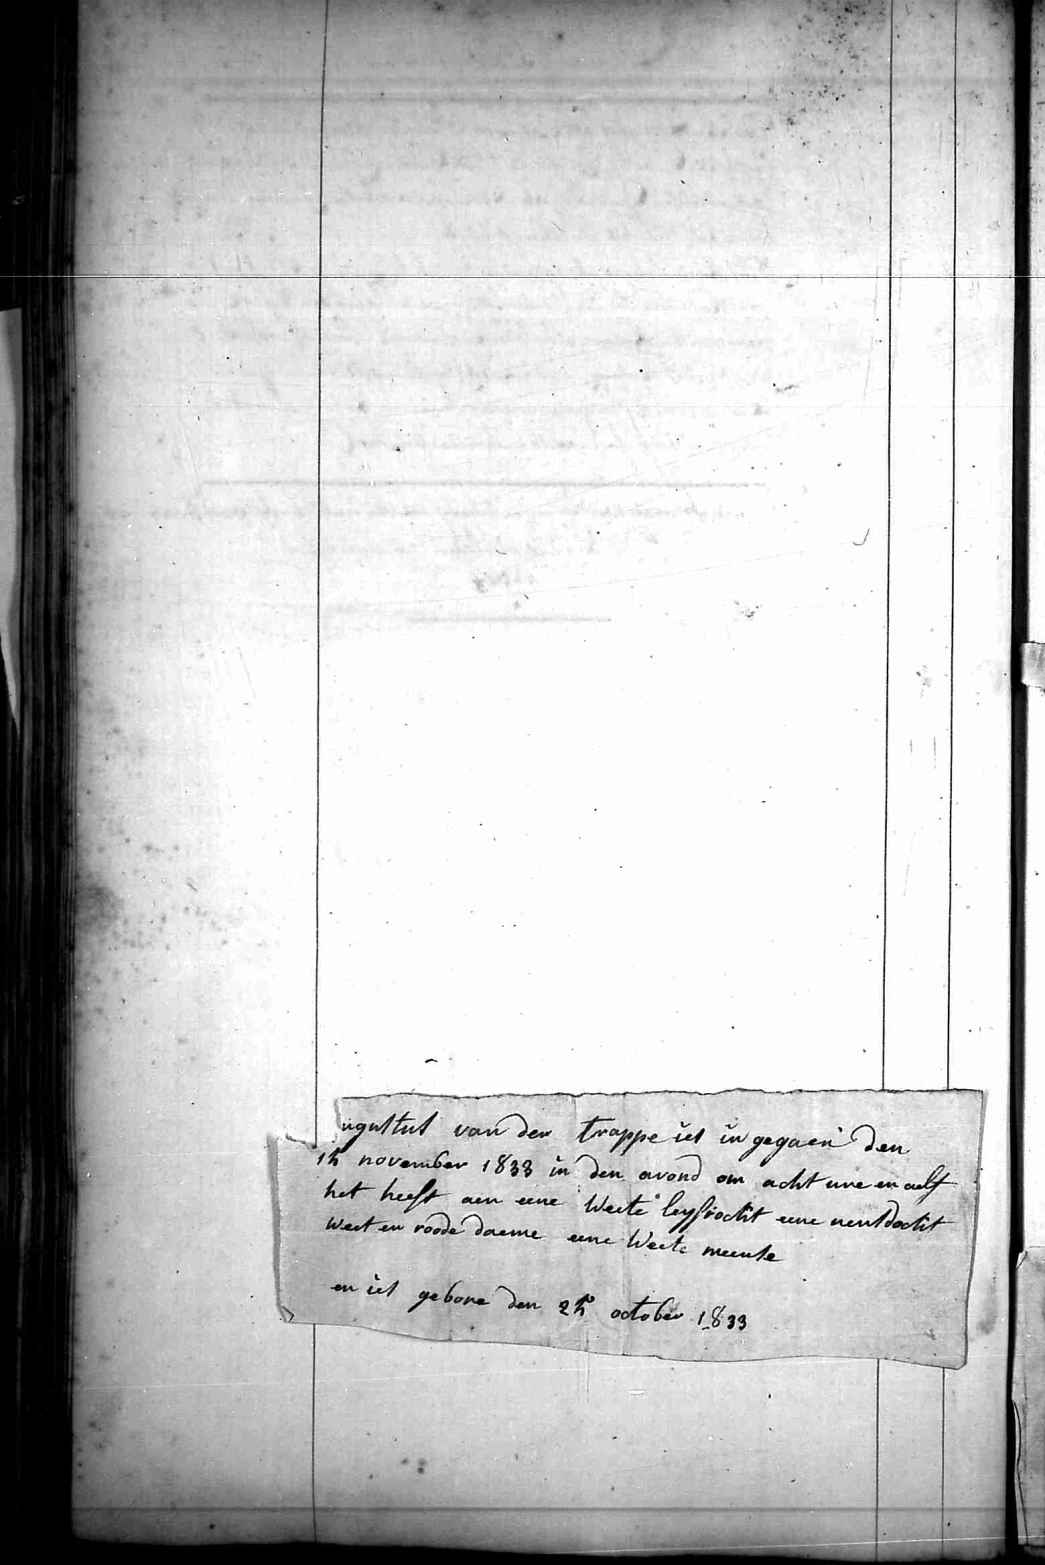 ugustus van der trappe ist in gegaen den
15 november 1833 in den avond om acht ure en aelf
het heeft aen eene weete leyfrockt eene neusdockt
weet en roode daeme eene weete meuse
en ist gebore den 25 october 1833